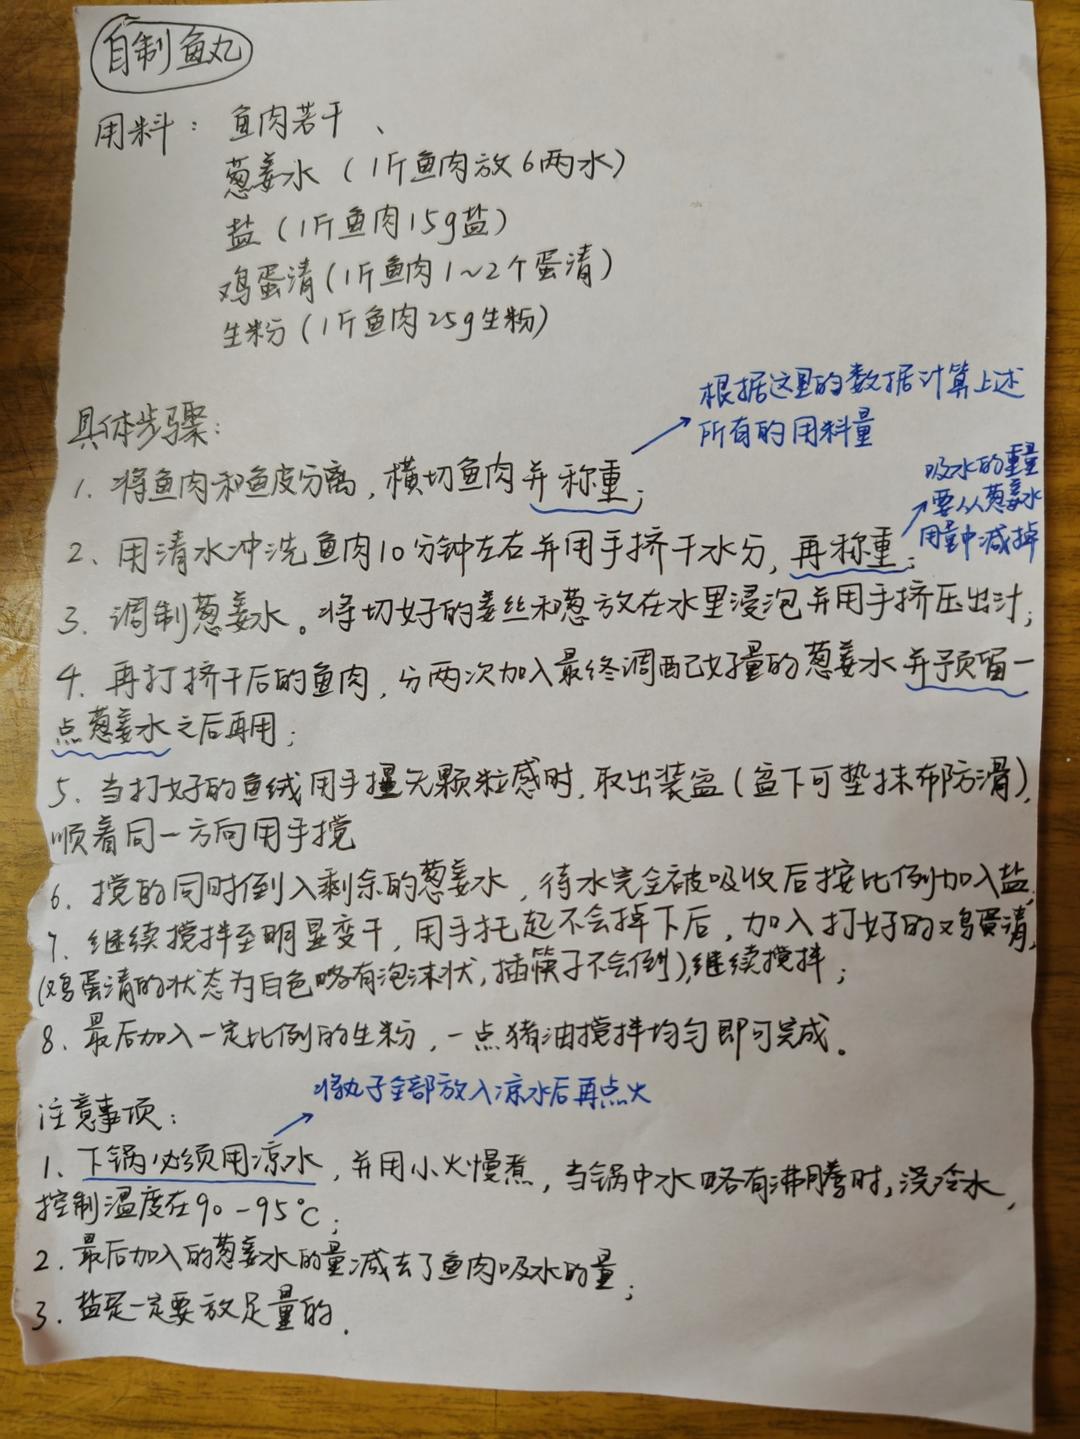 自制鱼丸
用料：鱼肉若干、
葱姜水（1斤鱼肉放6两水）
盐（1斤鱼肉15g盐）
鸡蛋清（1斤鱼肉1~2个蛋清）
生粉（1斤鱼肉25g生粉）
根据这里的数据计算上述
所有的用料量
具体步骤：
1、将鱼肉和鱼皮分离，横切鱼肉并称重；
吸水的重量
要从葱姜水
用量中减掉
2、用清水冲洗鱼肉10分钟左右并用手挤干水分，再称重；
3、调制葱姜水。将切好的姜丝和葱放在水里浸泡并用手挤压出汁；
4、再打挤干后的鱼肉，分两次加入最终调配好量的葱姜水并预留一
点葱姜水之后再用；
5、当打好的鱼绒用手撮无颗粒感时，取出装盆（盆下可垫抹布防滑），
顺着同一方向用手搅
6、搅的同时倒入剩余的葱姜水，待水完全被吸收后按比例加入盐，
7、继续搅拌至明显变干，用手托起不会掉下后，加入打好的鸡蛋清，
（鸡蛋清的状态为白色略有泡沫状，插筷子不会倒），继续搅拌；
8、最后加入一定比例的生粉，一点猪油搅拌均匀即可完成。
将丸子全部放入凉水后再点火
注意事项：
1、下锅必须用凉水，并用小火慢煮，当锅中水略有沸腾时，浇冷水，
控制温度在90-95℃；
2、最后加入的葱姜水的量减去了鱼肉吸水的量；
3、盐是一定要放足量的．